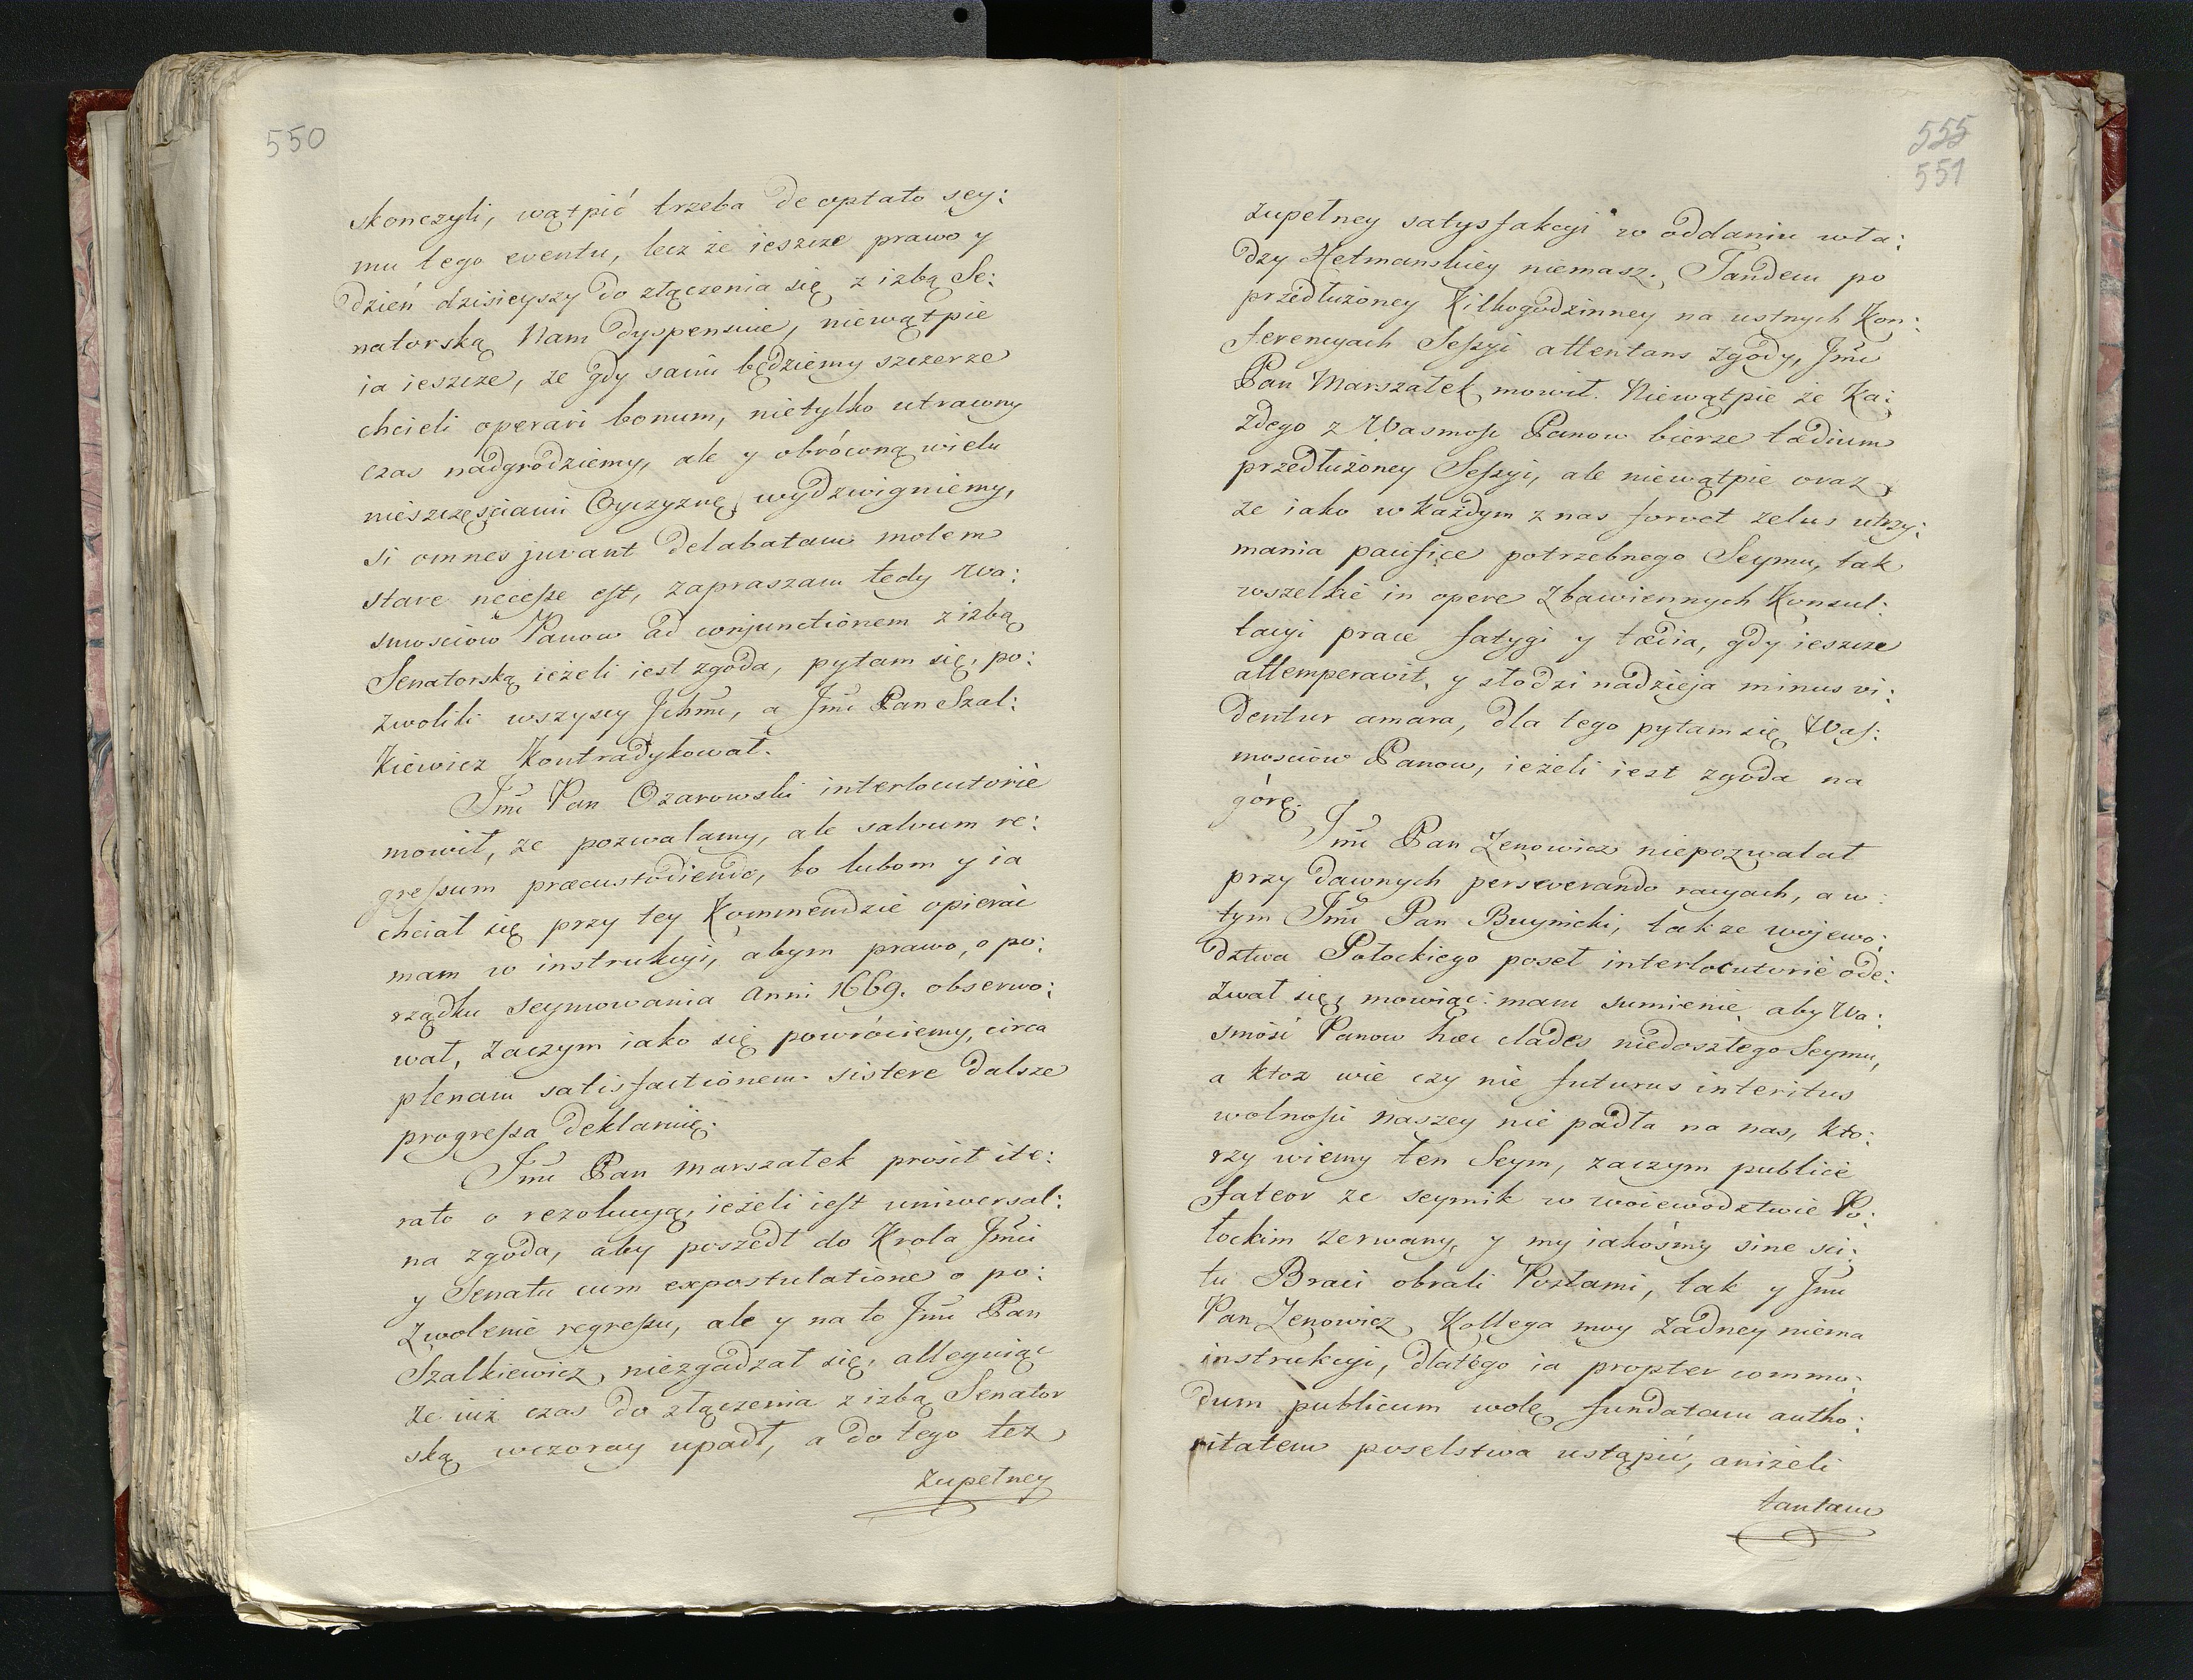 550
skonczyli, wątpić trzeba de optato sey:
mu tego eventu, lecz że ieszcze prawo y
dzień dzisieyszy do złączenia się z izbą Se:
natorską Nam dyspensuie, niewątpie
ia ieszcze, że gdy sami będziemy szczerze
chcieli operari bonum, nietylko utracony
czas nadgrodziemy, ale y obróconą wielu
nieszczęściami Oyczyznę wydzwigniemy,
si omnes juvant delabatam molem
stare necesse est, zapraszam tedy Wa:
smosciow Panow ad conjunctionem z izbą
Senatorską ieżeli iest zgoda, pytam się, po:
zwolili wszyscy Jchmć, a Jmć Pan Szal:
kiewicz Kontradykował.
Jmć Pan Ozarowski interlocutorie
mowił, ze pozwalamy, ale salvum re:
gressum præcustodiendo, bo lubom y ia
chciał się przy tey Kommendzie opierać
mam w instrukcyi, abym prawo, o po:
rządku seymowania Anni 1669. obserwo:
wał, Zaczym iako się powróciemy, circa
plenam satisfactionem sistere dalsze
progressa deklaruię.
Jmć Pan Marszałek prosił ite:
rato o rezolucyą, ieżeli iest uniwersal:
na zgoda, aby poszedł do Krola Jmći
y Senatu cum expostulatione o po:
zwolenie regressu, ale y na to Jmć Pan
Szalkiewicz niezgadzał się, alleguiąc
że iuż czas do złączenia z izbą Senator
ską wczoray upadł, a do tego tez
zupełney
555
551
zupełney satysfakcyi w oddaniu wła:
dzy Hetmanskiey niemasz. Tandem po
przedłużoney Kilkogodzinney na ustnych Kon:
ferencyach Sessyi attentans zgody, Jmć
Pan Marszałek mowił. Niewątpie że Ka:
zdego z Wasmość Panow bierze tædium
przedłużoney Sessyi, ale niewątpie oraz
że iako w każdym z nas fervet zelus utrzy:
mania pacifice potrzebnego Seymu, tak
wszelkie in opere zbawiennych Konsul:
tacyi prace fatygi y tædia, gdy ieszcze
attemperavit, y słodzi nadzieja minus vi:
dentur amara, dla tego pytam się Waś:
mosciow Panow, ieżeli iest zgoda na
górę.
Jmć Pan Zenowicz niepozwalał
przy dawnych perseverando racyach, a w:
tym Jmć Pan Buynicki, takze wojewo:
dztwa Połockiego poseł interlocutorie ode:
zwał się, mowiąc: mam sumienie, aby Wa:
smość Panow hæc clades niedoszłego Seymu,
a ktoz wie czy nie futurus interitus
wolnosci naszey nie padła na nas, kto:
rzy wiemy ten Seym, zaczym publice
fateor ze seymik w woiewodztwie Po:
łockim zerwany, y my iakośmy sine sci:
tu Braci obrali Posłami, tak y Jmć
Pan Zenowicz Kollega moy żadney niema
instrukcyi, dlatego ia propter commo:
dum publicum wolę fundatam autho:
ritatem poselstwa ustąpić, aniżeli
tantam